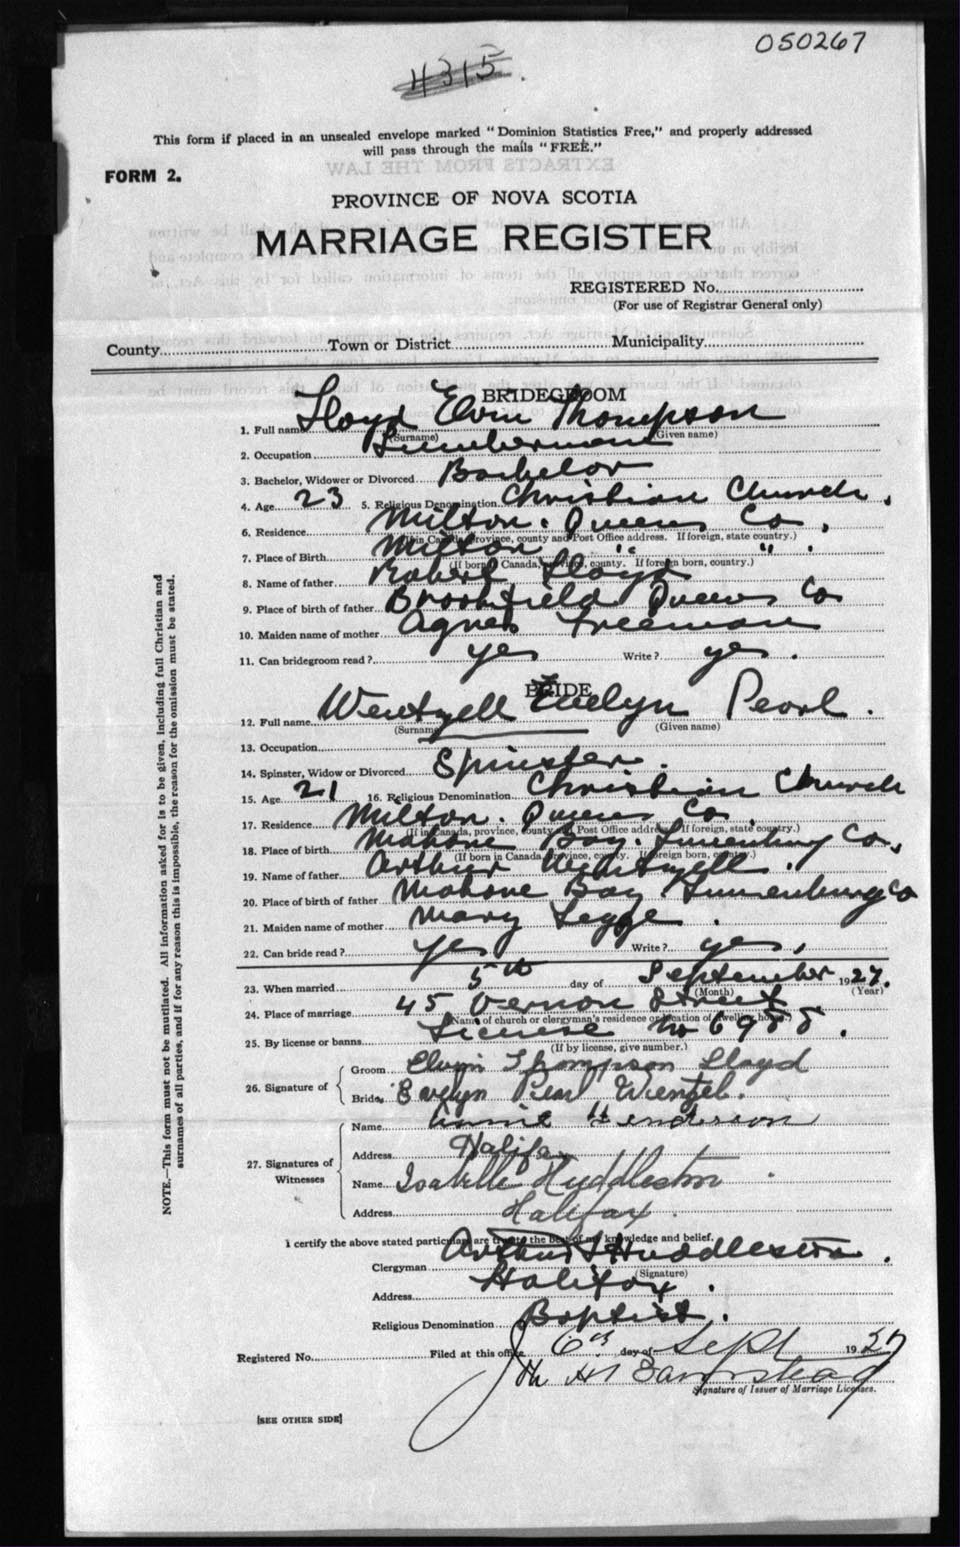 050267
4315
This form if placed in an unsealed envelope marked "Dominion Statistics Free," and properly addressed
will pass through the mails "FREE."
FORM 2.
PROVINCE OF NOVA SCOTIA
MARRIAGE REGISTER
REGISTERED No.
(For use of Registrar General only)
County Town or District Municipality
BRIDEGROOM
1. Full name Lloyd Elvin Thompson
(Surname) (Given name)
2. Occupation Lumberman
3. Bachelor, Widower or Divorced Bachelor
4. Age 23 5. Religious Denomination Christian Church.
6. Residence Milton. Queens Co.
(If in Canada, province, county and Post Office address. If foreign, state country.)
7. Place of Birth Milton " " .
(If born in Canada, province, county. If foreign born, country.)
8. Name of father Robert Lloyd
9. Place of birth of father Brookfield Queens Co
10. Maiden name of mother Agnes Freeman
11. Can bridegroom read? yes Write? yes.
BRIDE
12. Full name Wentzell Evelyn Pearl.
(Surname) (Given name)
13. Occupation
14. Spinster, Widow or Divorced Spinster.
15. Age 21 16. Religious Denomination Christian Church
17. Residence Milton. Queens Co
(If in Canada, province, county and Post Office address. If foreign, state country.)
18. Place of birth Mahone Bay. Lunenburg Co.
(If born in Canada, province, county. If foreign born, country.)
19. Name of father Arthur Wentzell.
20. Place of birth of father Mahone Bay Lunenburg Co
21. Maiden name of mother Mary Legge.
22. Can bride read? yes Write? yes.
23. When married 5th day of September 1927.
(Month) (Year)
24. Place of marriage 45 Vernon Street
(Name of church or clergyman's residence or location of dwelling house.)
25. By license or banns License No 6988.
(If by license, give number.)
26. Signature of
Groom Elvin Thompson Lloyd
Bride Evelyn Pearl Wentzel.
27. Signatures of Witnesses
Name Annie Henderson
Address Halifax
Name Isabelle Huddleston
Address Halifax.
I certify the above stated particulars are true to the best of my knowledge and belief.
Clergyman Arthur Huddleston.
(Signature)
Address Halifax.
Religious Denomination Baptist.
Registered No. Filed at this office 6th day of Sept 1927
Signature of Issuer of Marriage Licenses.
[SEE OTHER SIDE]
NOTE.—This form must not be mutilated. All information asked for is to be given, including full Christian and
surnames of all parties, and if for any reason this is impossible, the reason for the omission must be stated.